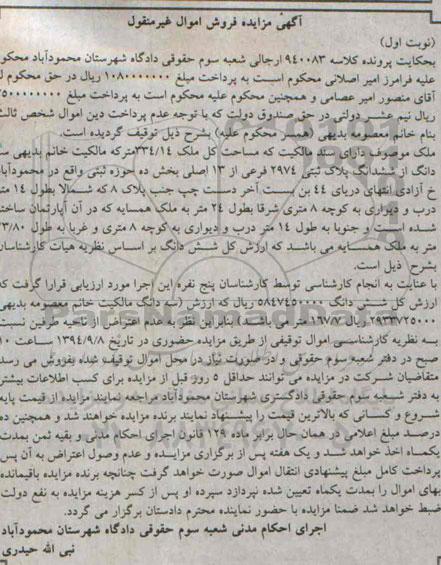 آگهی مزایده فروش اموال غیرمنقول
(نوبت اول)
بحکایت پرونده کلاسه ۹۴۰۰۸۳ ارجالی شعبه سوم حقوقی دادگاه شهرستان محمودآباد محکو
علیه فرامرز امیر اصلانی محکوم است به پرداخت مبلغ ۱۰۸۰۰۰۰۰۰۰ ریال در حق محکوم ل
آقای منصور امیر عصامی و همچنین محکوم علیه محکوم است به پرداخت مبلغ
ریال نیم عشر دولتی در حق صندوق دولت که با توجه عدم پرداخت دین اموال شخص ثالث
بنام خانم معصومه بدیهی (همسر محکوم علیه) بشرح ذیل توقیف گردیده است.
ملک موصوف دارای سند مالکیت که مساحت کل ملک ۳۳۴/۱۴مترکه مالکیت خانم بدیهی سه
دانگ از ششدانگ پلاک ثبتی ۲۹۷۴ فرعی از ۱۳ اصلی بخش ده حوزه ثبتی واقع در محمودآباد
خ آزادی انتهای دریای ۴۴ بن بست آخر دست چپ جنب پلاک ۸ که شمالا بطول ۱۴ متر
درب و دیواری به کوچه ۸ متری شرقا بطول ۲۴ متر به ملک همسایه که در آن آپارتمان ساخته
شده است و جنوبا به طول ۱۴ متر درب و دیواری به کوچه ۸ متری و غربا به طول ۲۳/۸۰
متر به ملک همسایه می باشد که ارزش کل شش دانگ بر اساس نظریه هیات کارشناسان
بشرح ذیل است.
با عنایت به انجام کارشناسی توسط کارشناسان پنج نفره این اجرا مورد ارزیابی قرار گرفت که
ارزش کل شش دانگ ۵۸۴۷۴۵۰۰۰۰ ریال که ارزش (سه دانگ مالکیت خانم معصومه بدیهی
۲۹۳۳۷۲۵۰۰۰ ریال متر می باشد) بنابراین نظر به عدم اعتراض از ناحیه طرفین نسبت
به نظریه کارشناسی اموال توقیفی از طریق مزایده حضوری در تاریخ ۱۳۹۴/۹/۸ ساعت ۱۰
صبح در دفتر شعبه سوم حقوقی و در صورت نیاز در محل اموال توقیف شده بفروش می رسد
متقاضیان شرکت در مزایده می توانند حداقل ۵ روز قبل از مزایده برای کسب اطلاعات بیشتر
به دفتر شعبه سوم حقوقی دادگستری شهرستان محمودآباد مراجعه نمایند مزایده از قیمت پایه
شروع و کسانی که بالاترین قیمت را پیشنهاد نمایند برنده مزایده خواهند شد و همچنین ده
درصد مبلغ اعلامی در همان حال برابر ماده ۱۲۹ قانون اجرای احکام مدنی و بقیه ثمن بمدت
یکماه اخذ خواهد شد و یک هفته پس از برگزاری مزایده و عدم وصول اعتراض به آن پس
پرداخت کامل مبلغ پیشنهادی انتقال اموال صورت خواهد گرفت چنانچه برنده مزایده باقیمانده
بهای اموال را بمدت یکماه تعیین شده نپردازد سپرده او پس از کسر هزینه مزایده به نفع دولت
ضبط خواهد شد ضمنا مزایده با حضور نماینده محترم دادستان برگزار می گردد.
اجرای احکام مدنی شعبه سوم حقوقی دادگاه شهرستان محمودآباد
نبی الله حیدری